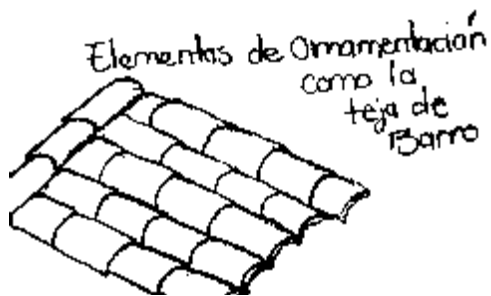 Elementos de Ornamentación
como la
teja de
Barro